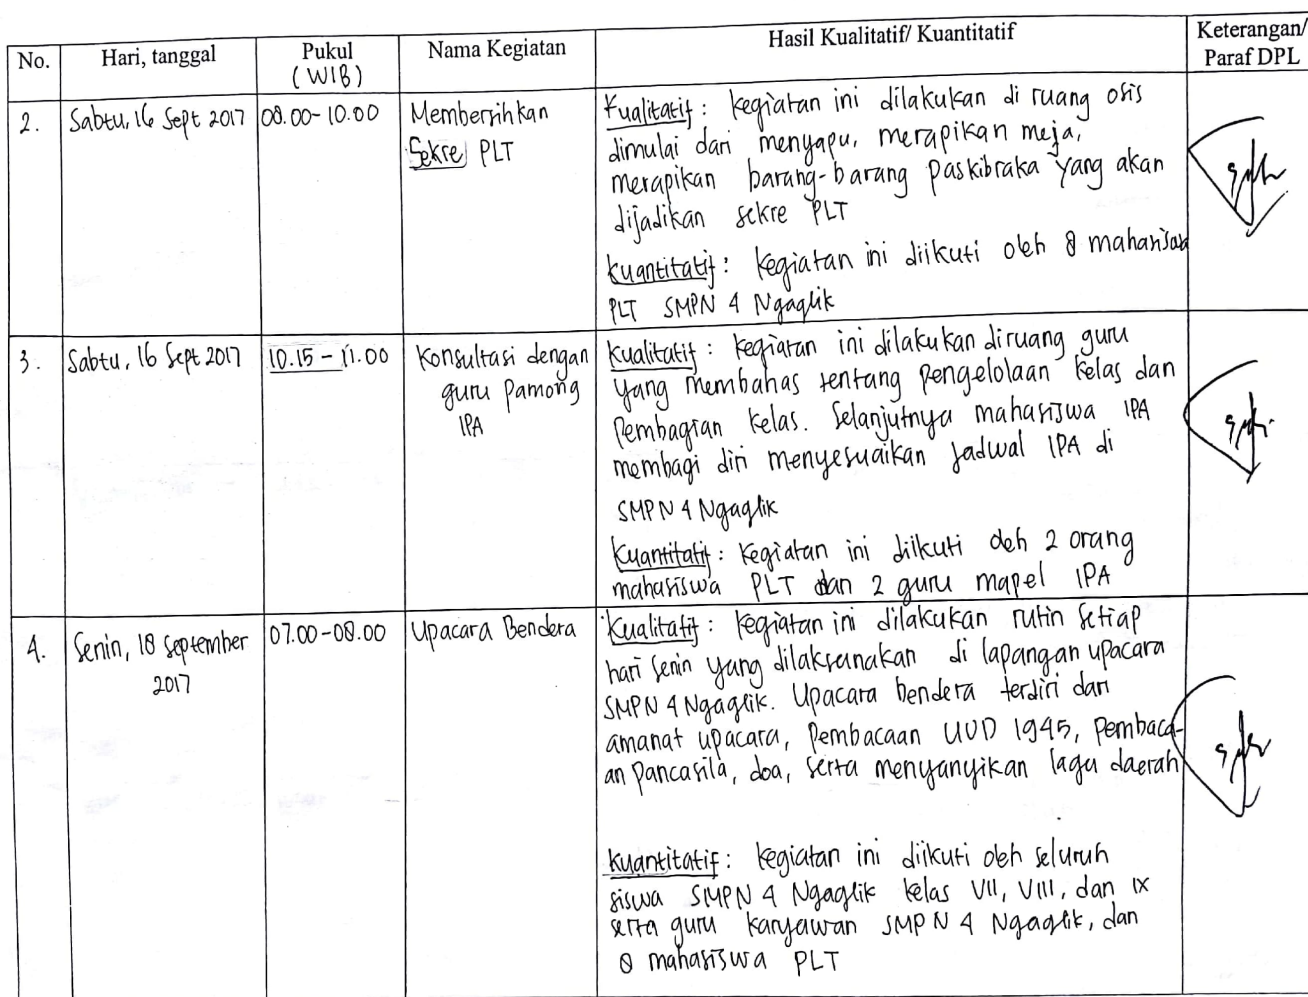 No. Hari, tanggal Pukul (WIB) Nama Kegiatan Hasil Kualitatif/ Kuantitatif Keterangan/ Paraf DPL
2. Sabtu, 16 Sept 2017 08.00-10.00 Membersihkan
Sekre PLT
Kualitatif : kegiatan ini dilakukan di ruang osis
dimulai dari menyapu, merapikan meja,
merapikan barang-barang paskibraka yang akan
dijadikan sekre PLT
kuantitatif : kegiatan ini diikuti oleh 8 mahasiswa
PLT SMPN 4 Ngaglik
3. Sabtu, 16 Sept 2017 10.15 - 11.00 Konsultasi dengan
guru Pamong
IPA
Kualitatif : kegiatan ini dilakukan diruang guru
yang membahas tentang pengelolaan kelas dan
Pembagian kelas. Selanjutnya mahasiswa IPA
membagi diri menyesuaikan jadwal IPA di
SMPN 4 Ngaglik
Kuantitatif : kegiatan ini diikuti oleh 2 orang
mahasiswa PLT dan 2 guru mapel IPA
4. Senin, 18 September
2017
07.00-08.00 Upacara Bendera
Kualitatif : kegiatan ini dilakukan rutin setiap
hari senin yang dilaksanakan di lapangan upacara
SMPN 4 Ngaglik. Upacara bendera terdiri dari
amanat upacara, Pembacaan UUD 1945, Pembaca-
an Pancasila, doa, serta menyanyikan lagu daerah
kuantitatif : kegiatan ini diikuti oleh seluruh
siswa SMPN 4 Ngaglik kelas VII, VIII, dan IX
serta guru karyawan SMPN 4 Ngaglik, dan
8 mahasiswa PLT